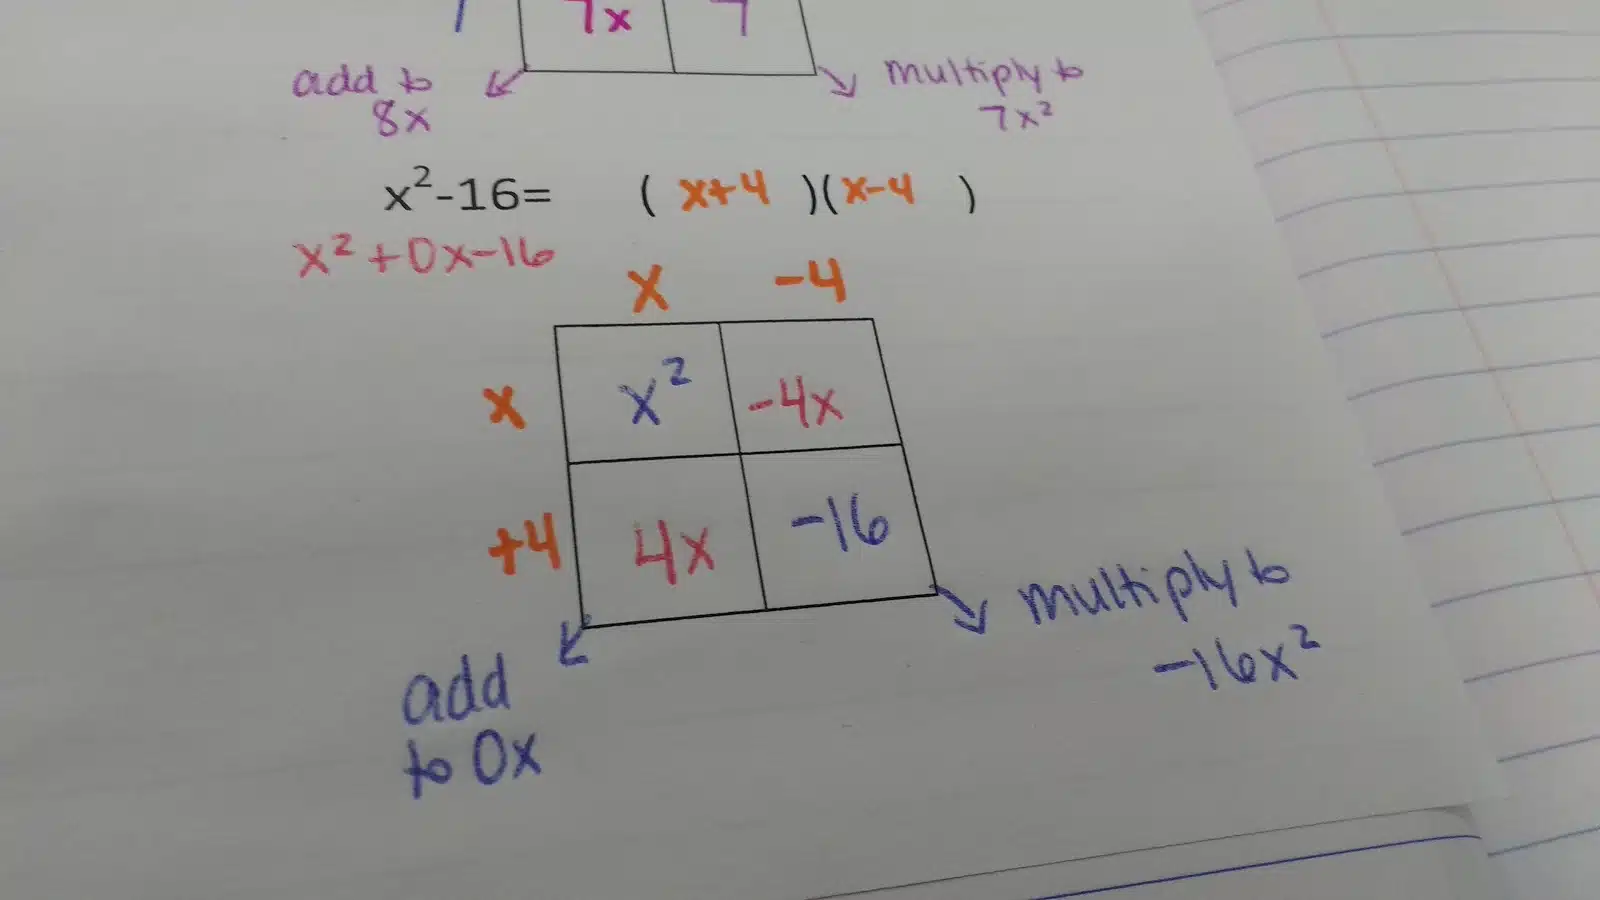 7x 7
add to
8x
multiply to
7x²
x²-16= ( x+4 )(x-4 )
x²+0x-16
x -4
x x² -4x
+4 4x -16
add
to 0x
multiply to
-16x²